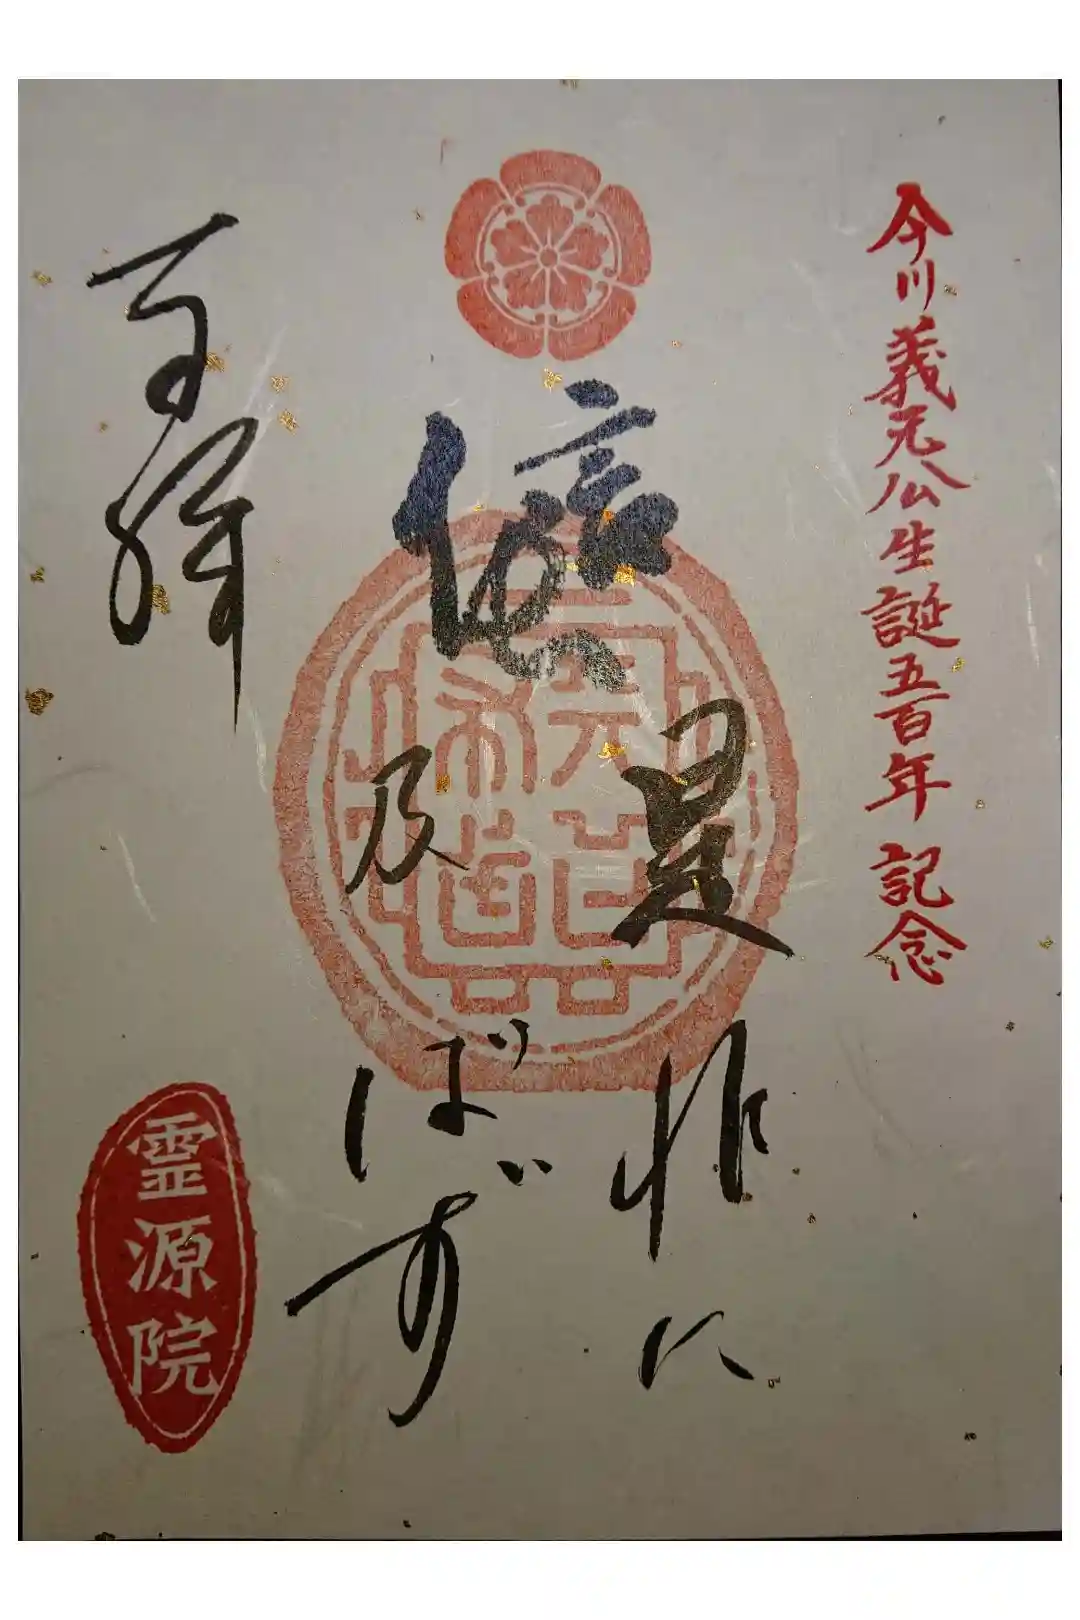 今川義元公生誕五百年 記念
信
是非に
及ばず
奉拝
霊源院